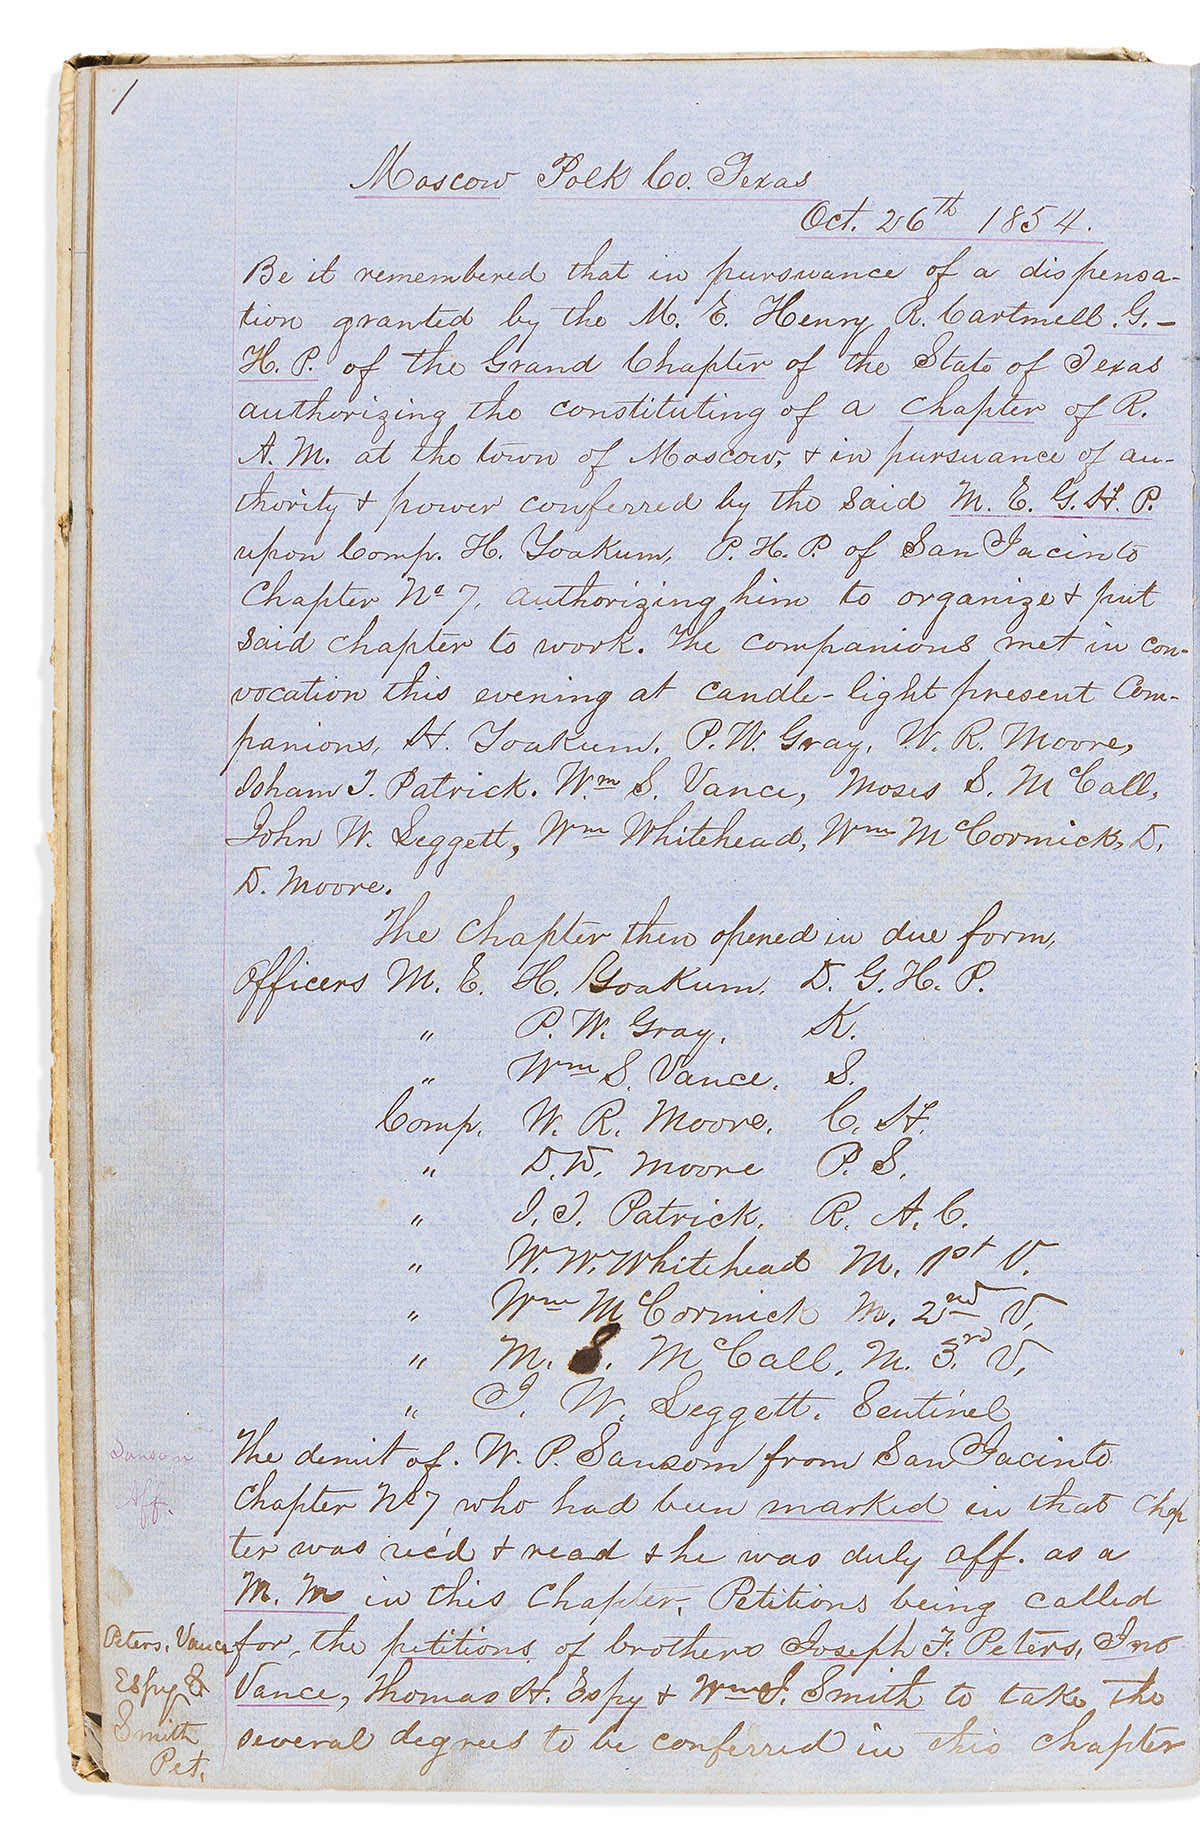 1
Moscow Polk Co. Texas
Oct. 26th 1854.
Be it remembered that in pursuance of a dispensa-
tion granted by the M. E. Henry R. Cartmell. G.-
H. P. of the Grand Chapter of the State of Texas
authorizing the constituting of a chapter of R.
A. M. at the town of Moscow, & in pursuance of au-
thority & power conferred by the said M. E. G. H. P.
upon Comp. H. Yoakum, P. H. P. of San Jacinto
Chapter No 7, authorizing him to organize & put
said chapter to work. The companions met in con-
vocation this evening at candle-light present Com-
panions, H. Yoakum, P. W. Gray, W. R. Moore,
Isham T. Patrick. Wm S. Vance, Moses S. McCall,
John W. Leggett, Wm Whitehead, Wm McCormick, D.
D. Moore.
The Chapter then opened in due form,
Officers M. E. H. Yoakum, D. G. H. P.
" P. W. Gray, K.
" Wm S. Vance, S.
Comp. W. R. Moore, C. H.
" D. D. Moore P. S.
" I. T. Patrick, R. A. C.
" W. W. Whitehead M. 1st V.
" Wm McCormick M. 2nd V.
" M. S. McCall, M. 3rd V.
" J. W. Leggett, Sentinel
The demit of. W. P. Sansom from San Jacinto
Chapter No 7 who had been marked in that chap
ter was rec'd & read & he was duly aff. as a
M. M in this Chapter, Petitions being called
for, the petitions of brothers Joseph F. Peters, Jno
Vance, Thomas H. Espy & Wm J. Smith to take the
several degrees to be conferred in this chapter
Sansom
Aff.
Peters, Vance
Espy &
Smith
Pet.